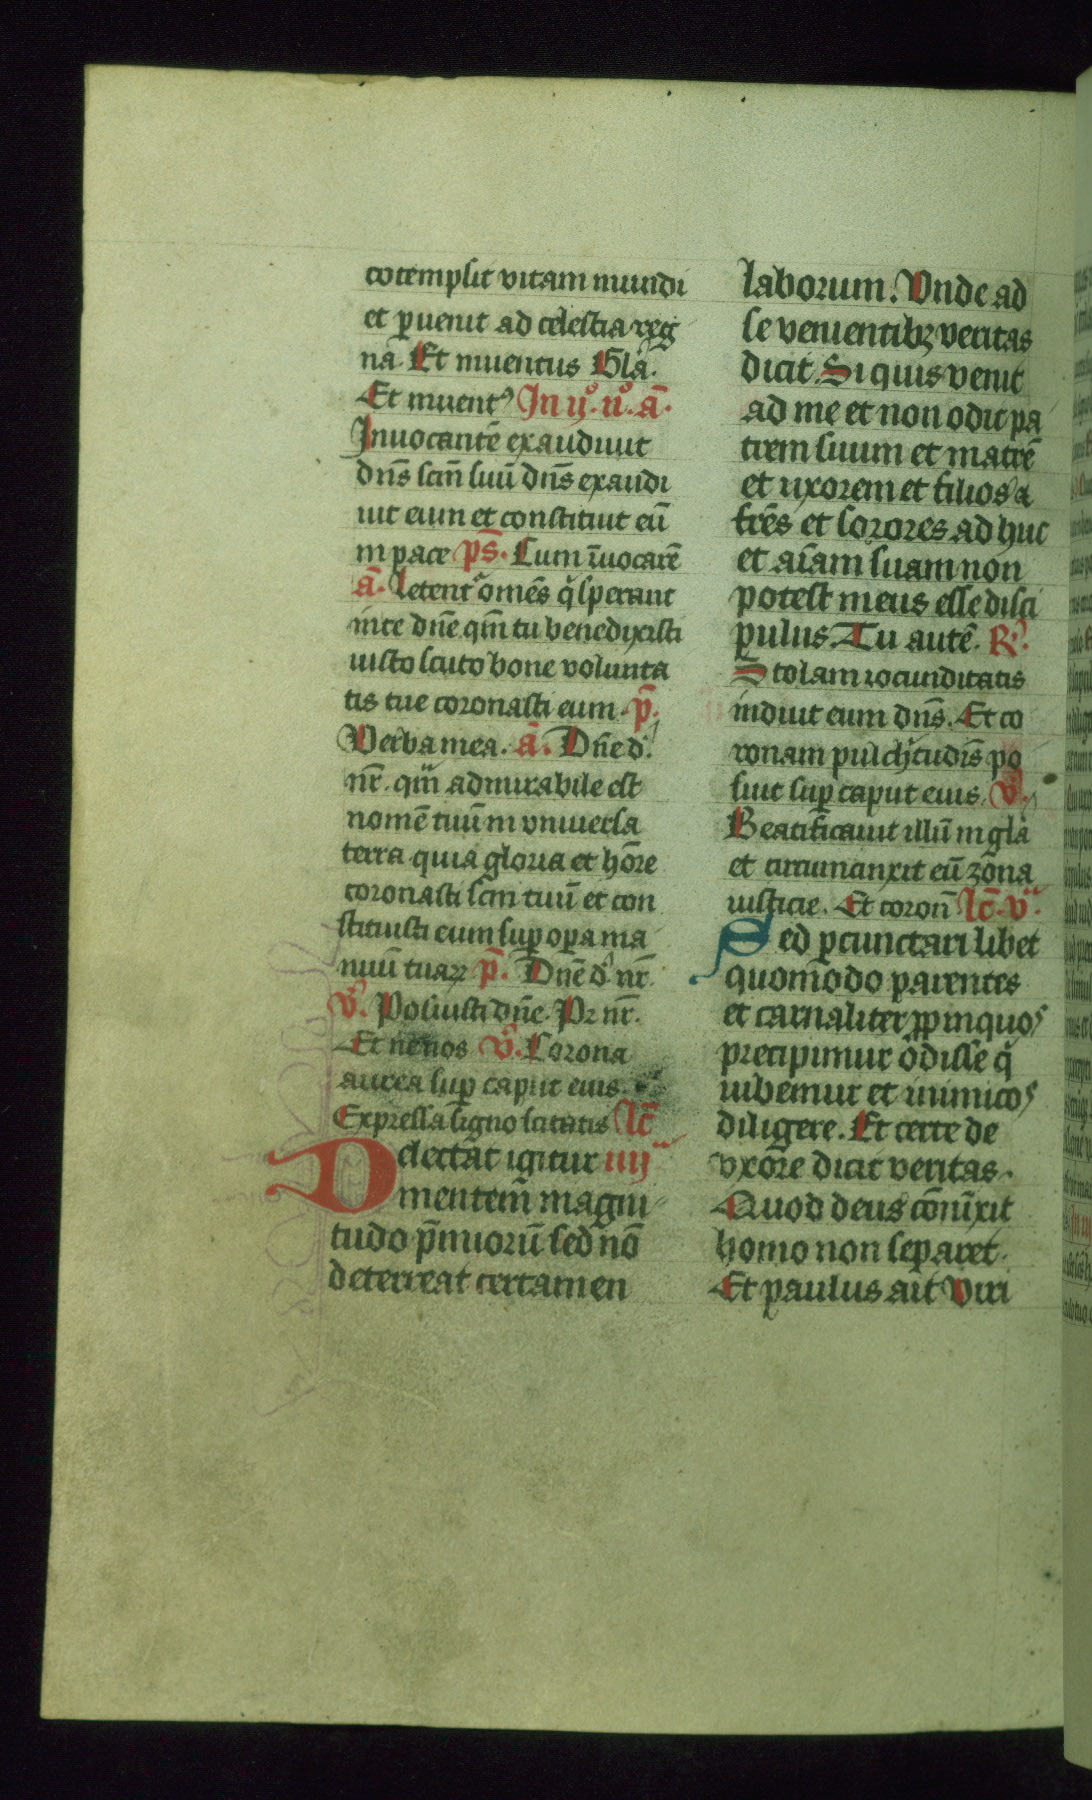 cotempsit vitam mundi
et ꝑuenit ad celestia reg
nā. Et inuentus Gl̄a.
Et inuentꝰ In ijº. nº. ā.
Inuocantē exaudiuit
dn̄s scm̄ suū dn̄s exaudi
uit eum et constituit eū
in pace ps̄. Cum īuocarē
ā. Letentᷣ omēs q̇ sperant
in te dn̄e qm̄ tu benedixisti
iusto scuto bone volunta
tis tue coronasti eum. p̄.
Verba mea. ā. Dn̄e d.
nr̄. qm̄ admirabile est
nomē tuū in vniuersa
terra quia gloria et hōre
coronasti scm̄ tuū et con
stituisti eum suꝑ oꝑa ma
nuū tuaꝝ p̄. Dn̄e d. nr̄.
V̊. Posuisti dn̄e. Pr nr̄.
Et ne nos V̊. Corona
aurea suꝑ caput eius.
Expressa signo scitatis lc̄
Delectat igitur iiij
mentem̄ magni
tudo p̄miorū sed nō
deterreat certamen
laborum. Vnde ad
se venientibꝫ veritas
dicit. Si quis venit
ad me et non odit pa
trem suum et matrē
et uxorem et filios ⁊
fr̄es et sorores ad huc
et aīam suam non
potest meus esse disci
pulus. Tu autē. R̊.
Stolam iocunditatis
induit eum dn̄s. Et co
ronam pulch̓tudīs po
suit suꝑ caput eius. V̊.
Beatificauit illū in gl̄a
et circumcinxit eū zōna
iusticie. Et coron̄ lc̄. v.
Sed ꝑcunctari libet
quomōdo parentes
et carnaliter ꝓpinquos
precipimur ōdisse q̇
iubemur et inimicos
diligere. Et certe de
vxōre dicit veritas.
Quod deus cōnīxit
homo non seꝑaret.
Et paulus ait Viri